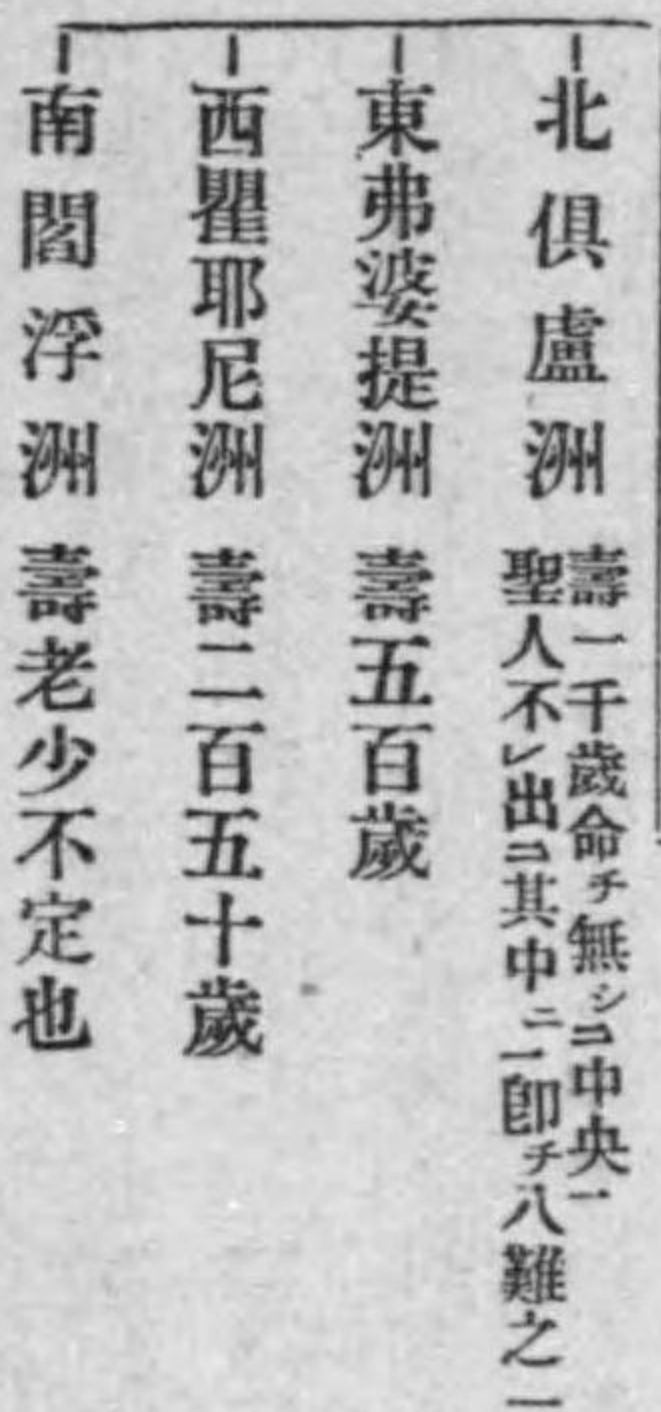 北俱盧洲 壽一千歲命チ無シ㆓中央㆒
聖人不㆑出㆓其中ニ㆒卽チ八難之一
東弗婆提洲 壽五百歲
西瞿耶尼洲 壽二百五十歲
南閻浮洲 壽老少不定也